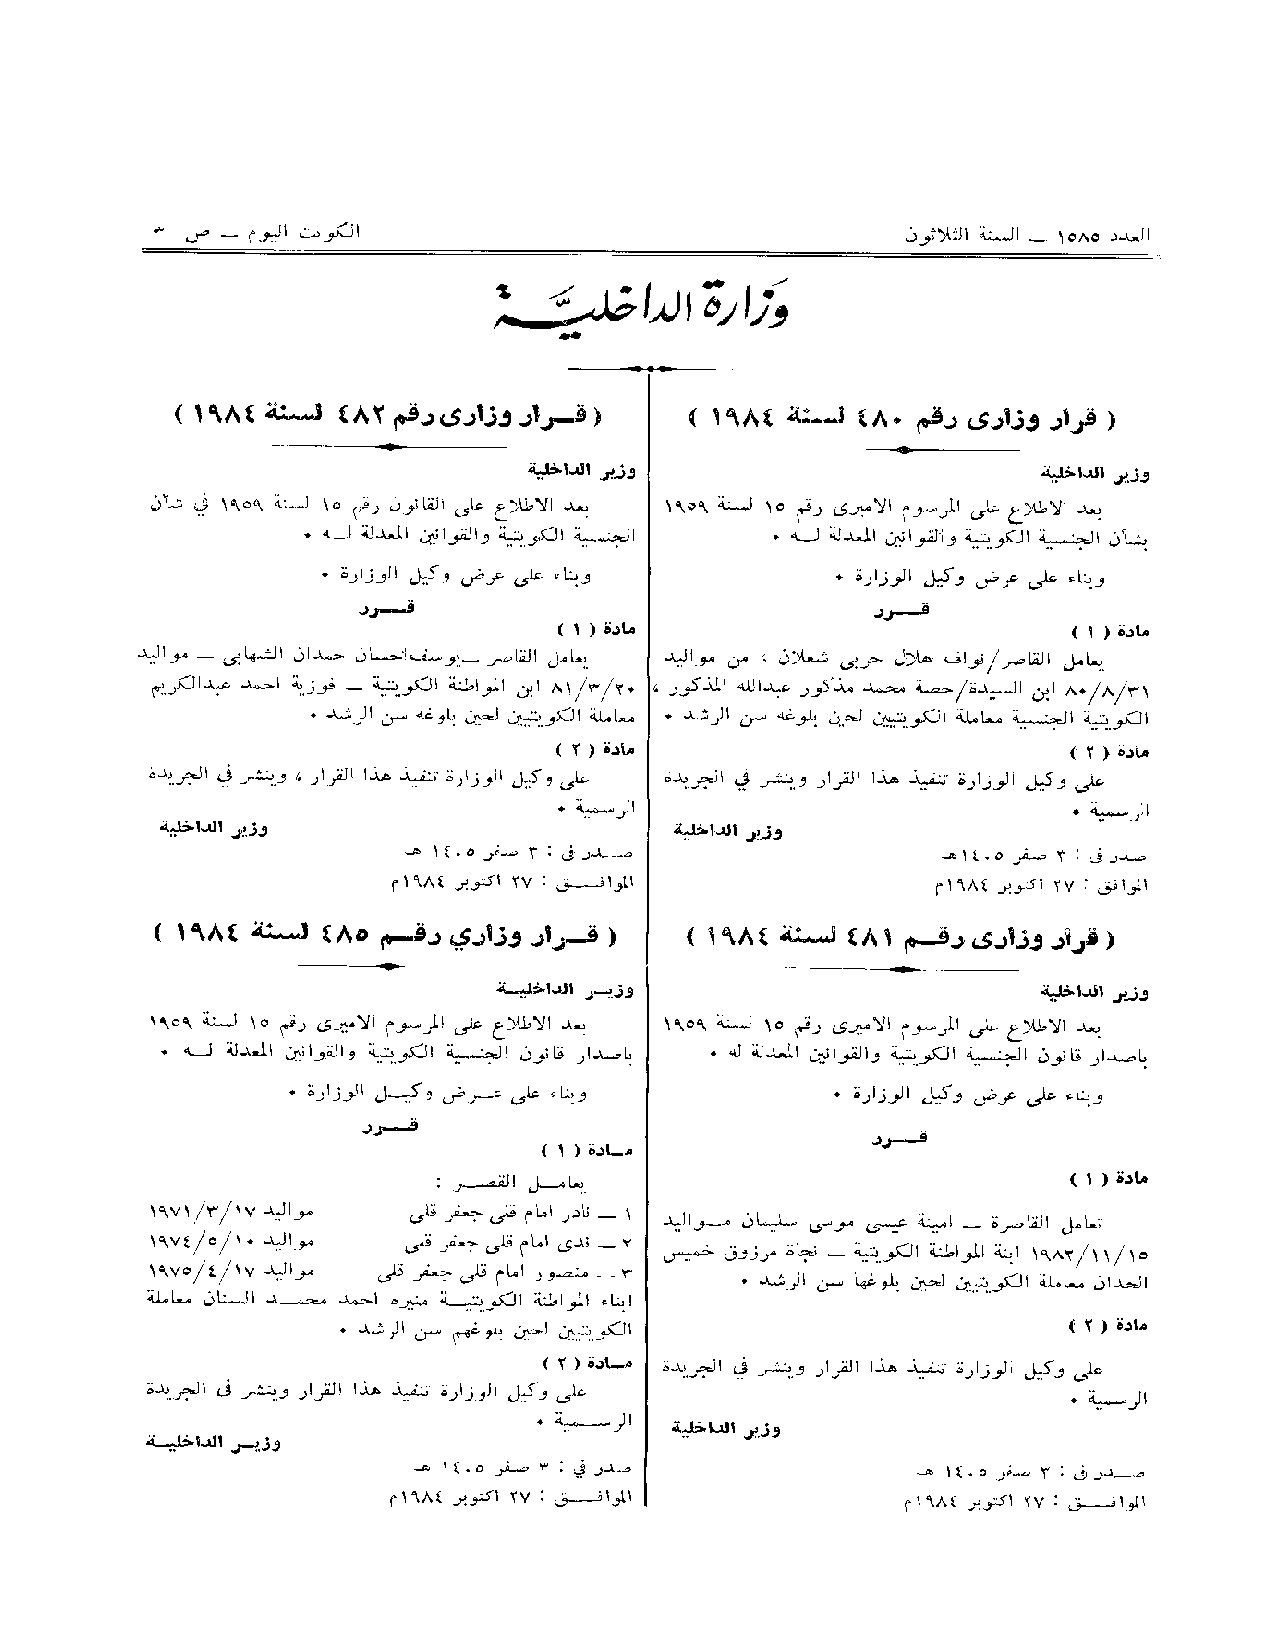 العدد ١٥٨٥ — السنة الثلاثون
الكويت اليوم — ص ٣
وزارة الداخلية
( قرار وزارى رقم ٤٨٠ لسنة ١٩٨٤ )
وزير الداخلية
بعد الاطلاع على المرسوم الاميرى رقم ١٥ لسنة ١٩٥٩
بشأن الجنسية الكويتية والقوانين المعدلة لـه ٠
وبناء على عرض وكيل الوزارة ٠
قـــرر
مادة ( ١ )
يعامل القاصر/نواف هلال حربى شعلان ، من مواليد
٨٠/٨/٣١ ابن السيدة/حصة محمد مذكور عبدالله المذكور ،
الكويتية الجنسية معاملة الكويتيين لحين بلوغه سن الرشد ٠
مادة ( ٢ )
على وكيل الوزارة تنفيذ هذا القرار وينشر في الجريدة
الرسمية ٠
وزير الداخلية
صدر فى : ٣ صفر ١٤٠٥هـ
الموافق : ٢٧ اكتوبر ١٩٨٤م
( قرار وزارى رقـم ٤٨١ لسنة ١٩٨٤ )
وزير الداخلية
بعد الاطلاع على المرسوم الاميرى رقم ١٥ لسنة ١٩٥٩
باصدار قانون الجنسية الكويتية والقوانين المعدلة له ٠
وبناء على عرض وكيل الوزارة ٠
قـــرد
مادة ( ١ )
تعامل القاصرة — امينة عيسى موسى سليمان مـواليد
١٩٨٢/١١/١٥ ابنة المواطنة الكويتية — نجاة مرزوق خميس
الحدان معاملة الكويتيين لحين بلوغها سن الرشد ٠
مادة ( ٢ )
على وكيل الوزارة تنفيذ هذا القرار وينشر في الجريدة
الرسمية ٠
وزير الداخلية
صـــدر فى : ٣ صفر ١٤٠٥ هـ
الموافـــق : ٢٧ اكتوبر ١٩٨٤م
( قـرار وزارى رقم ٤٨٢ لسنة ١٩٨٤ )
وزير الداخلية
بعد الاطلاع على القانون رقم ١٥ لسنة ١٩٥٩ في شأن
الجنسية الكويتية والقوانين المعدلة لـه ٠
وبناء على عرض وكيل الوزارة ٠
قـــرر
مادة ( ١ )
يعامل القاصر — يوسف احسان حمدان الشهابى — مواليد
٨١/٣/٢٠ ابن المواطنة الكويتية — فوزية احمد عبدالكريم
معاملة الكويتيين لحين بلوغه سن الرشد ٠
مادة ( ٢ )
على وكيل الوزارة تنفيذ هذا القرار ، وينشر في الجريدة
الرسمية ٠
وزير الداخلية
صـــدر فى : ٣ صفر ١٤٠٥ هـ
الموافـــق : ٢٧ اكتوبر ١٩٨٤م
( قـرار وزاري رقـم ٤٨٥ لسنة ١٩٨٤ )
وزيـر الداخليـة
بعد الاطلاع على المرسوم الاميرى رقم ١٥ لسنة ١٩٥٩
باصدار قانون الجنسية الكويتية والقوانين المعدلة لـه ٠
وبناء على عـرض وكيـل الوزارة ٠
قـــرد
مـادة ( ١ )
يعامـل القصـر :
١ — نادر امام قلى جعفر قلى مواليد ١٩٧١/٣/١٧
٢ — ندى امام قلى جعفر قلى مواليد ١٩٧٤/٥/١٠
٣ -- منصور امام قلى جعفر قلى مواليد ١٩٧٥/٤/١٧
ابناء المواطنة الكويتيـة منيره احمد محمـد السنان معاملة
الكويتيين لحين بلوغهم سن الرشد ٠
مـادة ( ٢ )
على وكيل الوزارة تنفيذ هذا القرار وينشر فى الجريدة
الرسـمية ٠
وزيـر الداخليـة
صدر في : ٣ صفر ١٤٠٥ هـ
الموافـــق : ٢٧ اكتوبر ١٩٨٤م